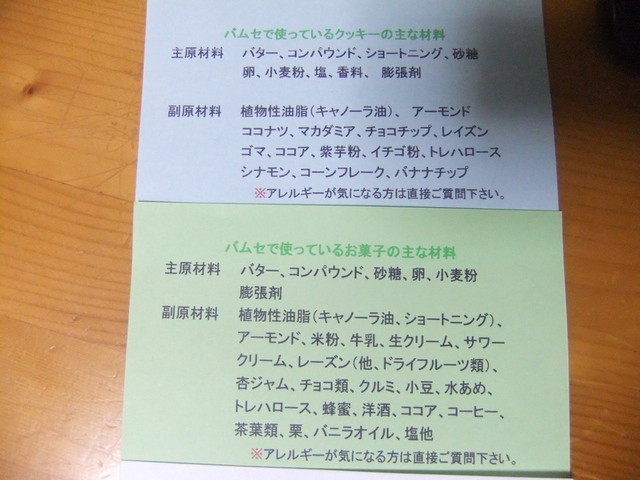 バムセで使っているクッキーの主な材料
主原材料 バター、コンパウンド、ショートニング、砂糖
卵、小麦粉、塩、香料、 膨張剤
副原材料 植物性油脂(キャノーラ油)、 アーモンド
ココナツ、マカダミア、チョコチップ、レイズン
ゴマ、ココア、紫芋粉、イチゴ粉、トレハロース
シナモン、コーンフレーク、バナナチップ
※アレルギーが気になる方は直接ご質問下さい。
バムセで使っているお菓子の主な材料
主原材料 バター、コンパウンド、砂糖、卵、小麦粉
膨張剤
副原材料 植物性油脂(キャノーラ油、ショートニング)、
アーモンド、米粉、牛乳、生クリーム、サワー
クリーム、レーズン(他、ドライフルーツ類)、
杏ジャム、チョコ類、クルミ、小豆、水あめ、
トレハロース、蜂蜜、洋酒、ココア、コーヒー、
茶葉類、栗、バニラオイル、塩他
※アレルギーが気になる方は直接ご質問下さい。